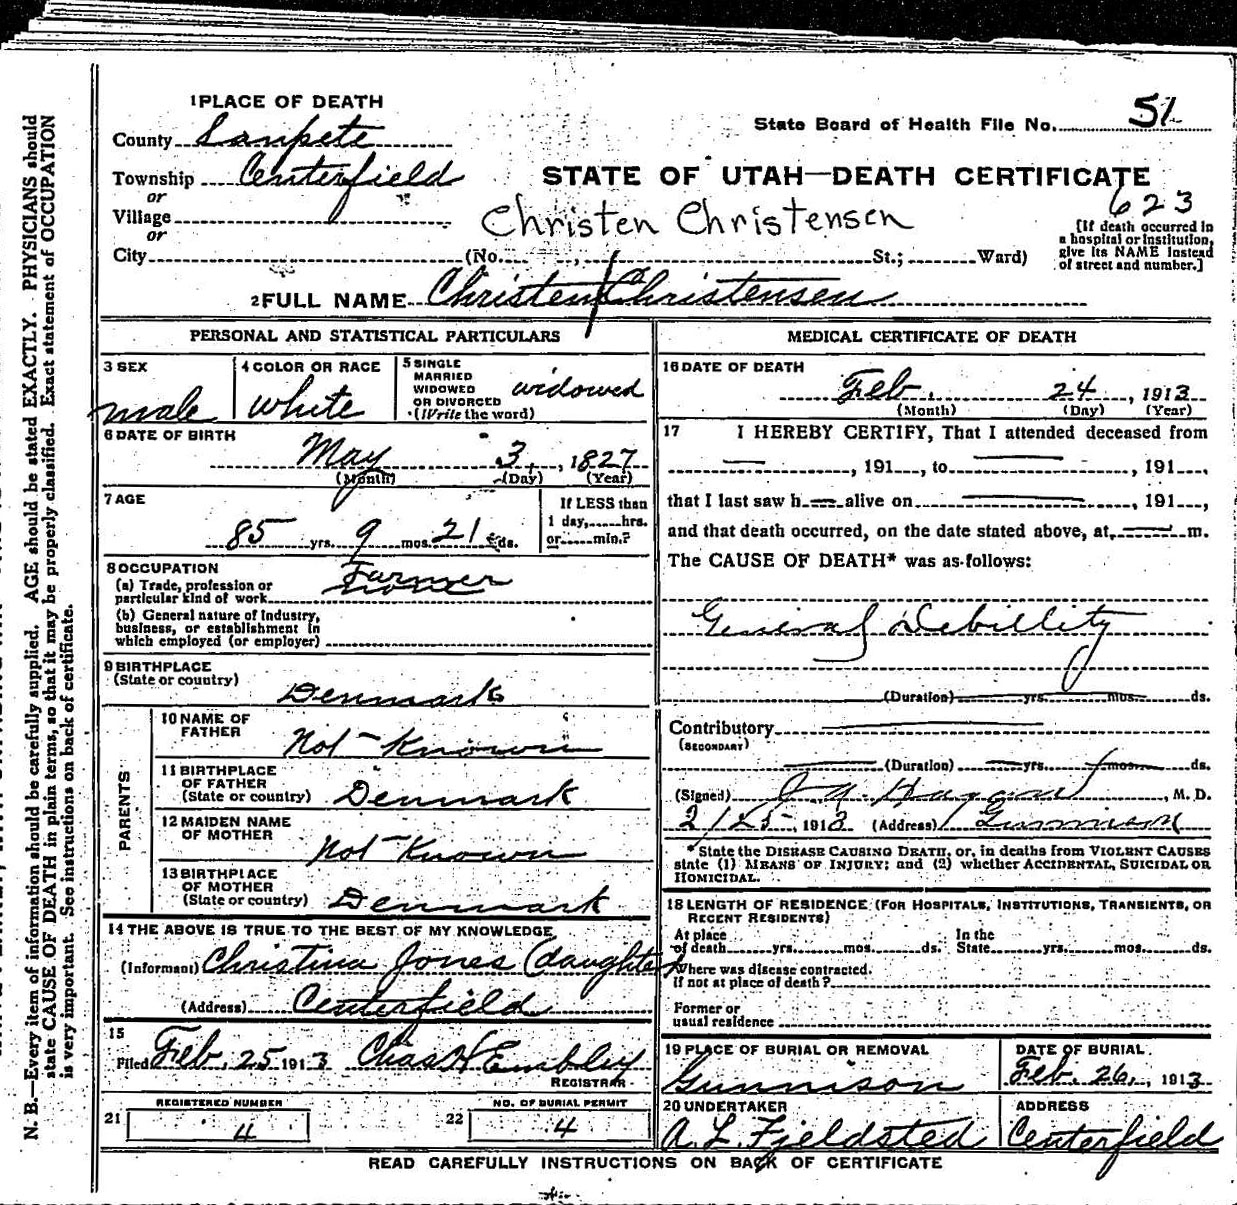 1 PLACE OF DEATH
County Sanpete
State Board of Health File No. 51
Township Centerfield
or
Village
or
City (No. St.; Ward)
STATE OF UTAH—DEATH CERTIFICATE
623
Christen Christensen
[If death occurred in
a hospital or institution,
give its NAME instead
of street and number.]
2 FULL NAME Christen Christensen
PERSONAL AND STATISTICAL PARTICULARS
3 SEX
male
4 COLOR OR RACE
white
5 SINGLE
MARRIED
WIDOWED
OR DIVORCED
(Write the word)
widowed
6 DATE OF BIRTH
May 3, 1827
(Month) (Day) (Year)
7 AGE
85 yrs. 9 mos. 21 ds.
If LESS than
1 day, hrs.
or min.?
8 OCCUPATION
(a) Trade, profession or
particular kind of work
Farmer
none
(b) General nature of industry,
business, or establishment in
which employed (or employer)
9 BIRTHPLACE
(State or country)
Denmark
PARENTS
10 NAME OF
FATHER
Not Known
11 BIRTHPLACE
OF FATHER
(State or country) Denmark
12 MAIDEN NAME
OF MOTHER
Not Known
13 BIRTHPLACE
OF MOTHER
(State or country) Denmark
14 THE ABOVE IS TRUE TO THE BEST OF MY KNOWLEDGE
(Informant) Christina Jones (daughter)
(Address) Centerfield
15
Filed Feb. 25 1913 Chas H Embley
REGISTRAR
21 REGISTERED NUMBER
4
22 NO. OF BURIAL PERMIT
4
MEDICAL CERTIFICATE OF DEATH
16 DATE OF DEATH
Feb. 24, 1913
(Month) (Day) (Year)
17 I HEREBY CERTIFY, That I attended deceased from
, 191 , to , 191 ,
that I last saw h alive on , 191 ,
and that death occurred, on the date stated above, at, m.
The CAUSE OF DEATH* was as follows:
General Debillity
(Duration) yrs. mos. ds.
Contributory
(SECONDARY)
(Duration) yrs. mos. ds.
(Signed) J A Hagan, M. D.
2/25, 1913 (Address) Gunnison
* State the DISEASE CAUSING DEATH, or, in deaths from VIOLENT CAUSES
state (1) MEANS OF INJURY; and (2) whether ACCIDENTAL, SUICIDAL OR
HOMICIDAL.
18 LENGTH OF RESIDENCE (FOR HOSPITALS, INSTITUTIONS, TRANSIENTS, OR
RECENT RESIDENTS)
At place In the
of death yrs. mos. ds. State yrs. mos. ds.
Where was disease contracted.
If not at place of death?
Former or
usual residence
19 PLACE OF BURIAL OR REMOVAL
Gunnison
DATE OF BURIAL
Feb. 26, 1913
20 UNDERTAKER
A. L. Fjeldsted
ADDRESS
Centerfield
READ CAREFULLY INSTRUCTIONS ON BACK OF CERTIFICATE
N. B.—Every item of information should be carefully supplied. AGE should be stated EXACTLY. PHYSICIANS should
state CAUSE OF DEATH in plain terms, so that it may be properly classified. Exact statement of OCCUPATION
is very important. See instructions on back of certificate.